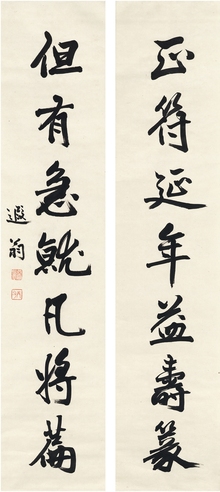 正符延年益壽篆
但有急就凡將篇
遐翁